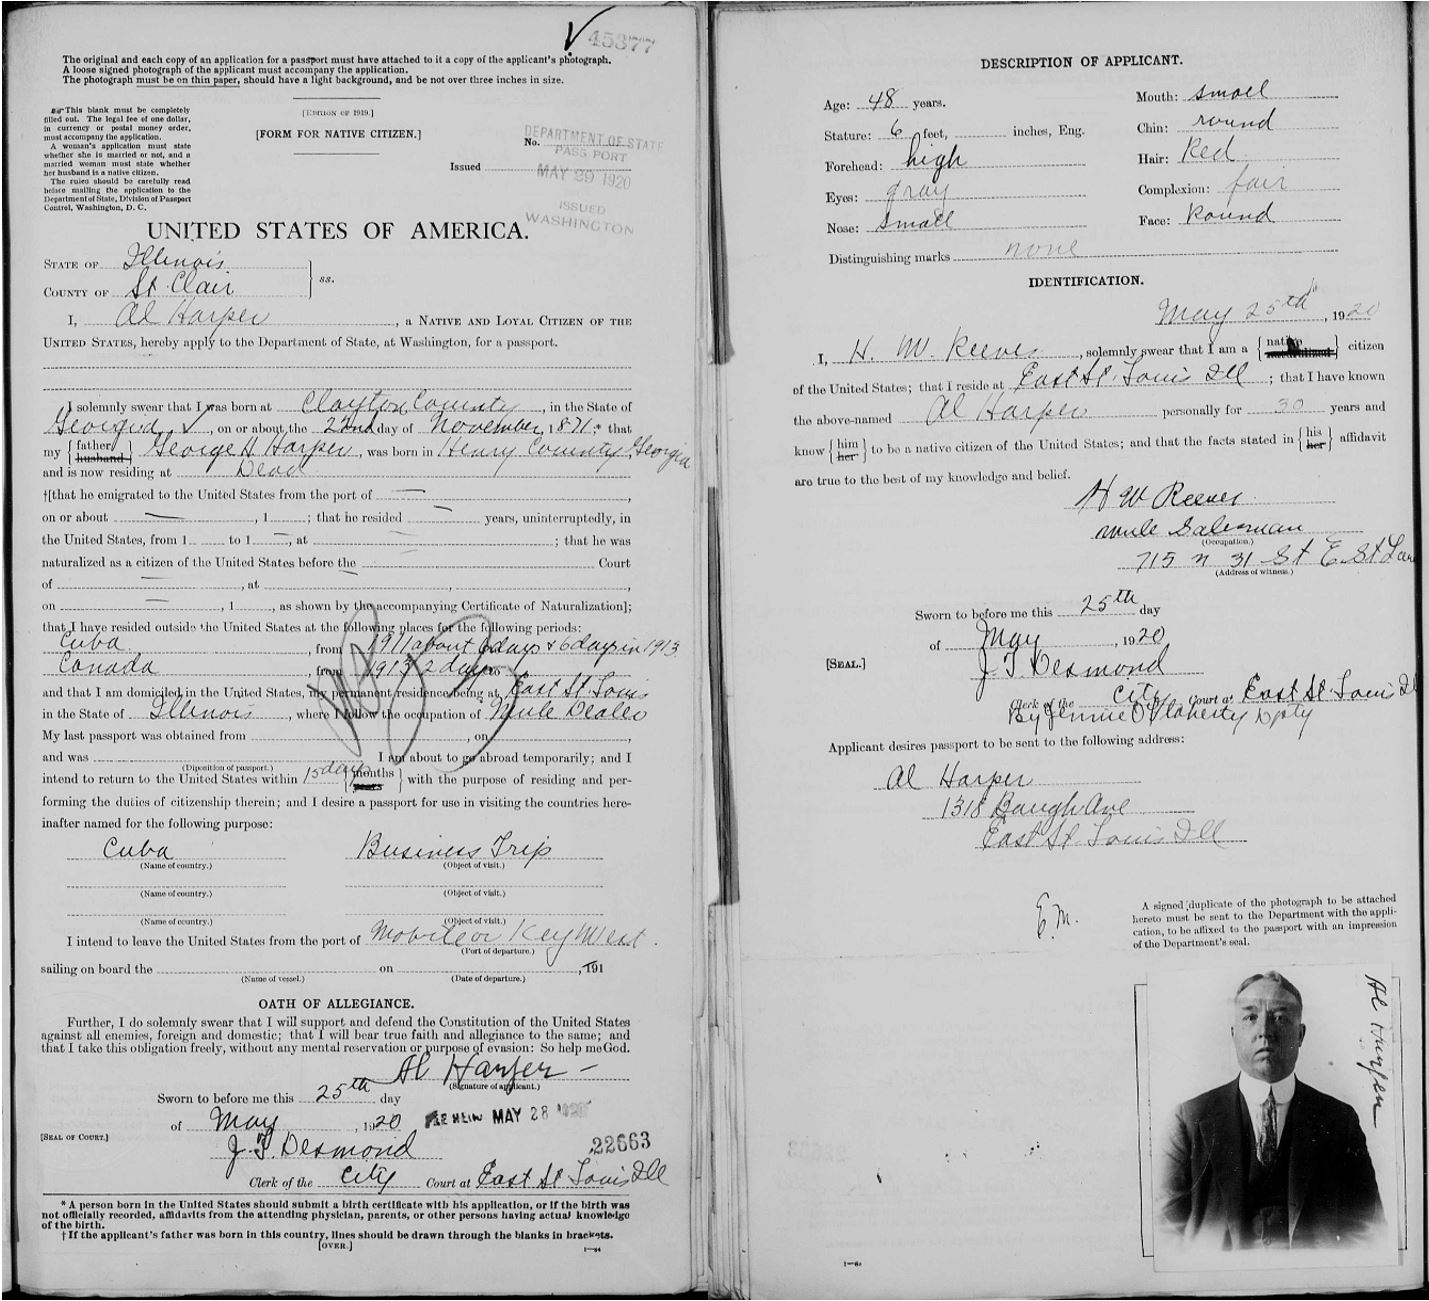 45377
The original and each copy of an application for a passport must have attached to it a copy of the applicant's photograph.
A loose signed photograph of the applicant must accompany the application.
The photograph must be on thin paper, should have a light background, and be not over three inches in size.
This blank must be completely
filled out. The legal fee of one dollar,
in currency or postal money order,
must accompany the application.
A woman's application must state
whether she is married or not, and a
married woman must state whether
her husband is a native citizen.
The rules should be carefully read
before mailing the application to the
Department of State, Division of Passport
Control, Washington, D. C.
[EDITION OF 1919.]
[FORM FOR NATIVE CITIZEN.]
No.
Issued
DEPARTMENT OF STATE
PASSPORT
MAY 29 1920
ISSUED
WASHINGTON
UNITED STATES OF AMERICA.
STATE OF Illinois
COUNTY OF St. Clair
ss.
I, Al Harper, a NATIVE AND LOYAL CITIZEN OF THE
UNITED STATES, hereby apply to the Department of State, at Washington, for a passport.
I solemnly swear that I was born at Clayton County, in the State of
Georgia, on or about the 22nd day of November, 1871;* that
my {father husband} George H Harper, was born in Henry County, Georgia
and is now residing at Dead
†[that he emigrated to the United States from the port of
on or about , 1 ; that he resided years, uninterruptedly, in
the United States, from 1 to 1 , at ; that he was
naturalized as a citizen of the United States before the Court
of , at ,
on , 1 , as shown by the accompanying Certificate of Naturalization];
that I have resided outside the United States at the following places for the following periods:
Cuba, from 1911 about 6 days & 6 days in 1913
Canada, from 1913 2 days to
and that I am domiciled in the United States, my permanent residence being at East St. Louis
in the State of Illinois, where I follow the occupation of Mule Dealer
My last passport was obtained from , on ,
and was I am about to go abroad temporarily; and I
(Diposition of passport.)
intend to return to the United States within 15 days {months years} with the purpose of residing and per-
forming the duties of citizenship therein; and I desire a passport for use in visiting the countries here-
inafter named for the following purpose:
Cuba Business Trip
(Name of country.) (Object of visit.)
(Name of country.) (Object of visit.)
(Name of country.) (Object of visit.)
I intend to leave the United States from the port of Mobile or Key West
(Port of departure.)
sailing on board the on , 191
(Name of vessel.) (Date of departure.)
OATH OF ALLEGIANCE.
Further, I do solemnly swear that I will support and defend the Constitution of the United States
against all enemies, foreign and domestic; that I will bear true faith and allegiance to the same; and
that I take this obligation freely, without any mental reservation or purpose of evasion: So help me God.
Al Harper
(Signature of applicant.)
Sworn to before me this 25th day
of May, 1920
MAY 28 1920
[SEAL OF COURT.]
J. T. Desmond
22663
Clerk of the City Court at East St Louis Ill
* A person born in the United States should submit a birth certificate with his application, or if the birth was
not officially recorded, affidavits from the attending physician, parents, or other persons having actual knowledge
of the birth.
† If the applicant's father was born in this country, lines should be drawn through the blanks in brackets.
[OVER.]
DESCRIPTION OF APPLICANT.
Age: 48 years. Mouth: small
Stature: 6 feet, inches, Eng. Chin: round
Forehead: high Hair: Red
Eyes: gray Complexion: fair
Nose: small Face: Round
Distinguishing marks none
IDENTIFICATION.
May 25th, 1920
I, H. W. Reeves, solemnly swear that I am a {native naturalized} citizen
of the United States; that I reside at East St. Louis Ill; that I have known
the above-named Al Harper personally for 30 years and
know {him her} to be a native citizen of the United States; and that the facts stated in {his her} affidavit
are true to the best of my knowledge and belief.
H W Reeves
mule Salesman
(Occupation.)
715 N 31 St E. St Lou
(Address of witness.)
Sworn to before me this 25th day
of May, 1920
[SEAL.]
J T Desmond
Clerk of the City Court at East St. Louis Ill
By Jennie O'Flaherty Dpty
Applicant desires passport to be sent to the following address:
Al Harper
1318 Baugh Ave
East St. Louis Ill
E.M.
A signed duplicate of the photograph to be attached
hereto must be sent to the Department with the appli-
cation, to be affixed to the passport with an impression
of the Department's seal.
Al Harper